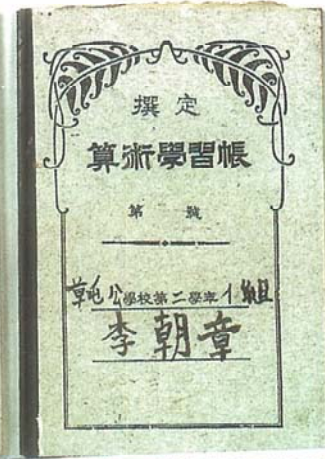 撰定
算術學習帳
第 號
草屯公學校第二學年イ組
李朝章